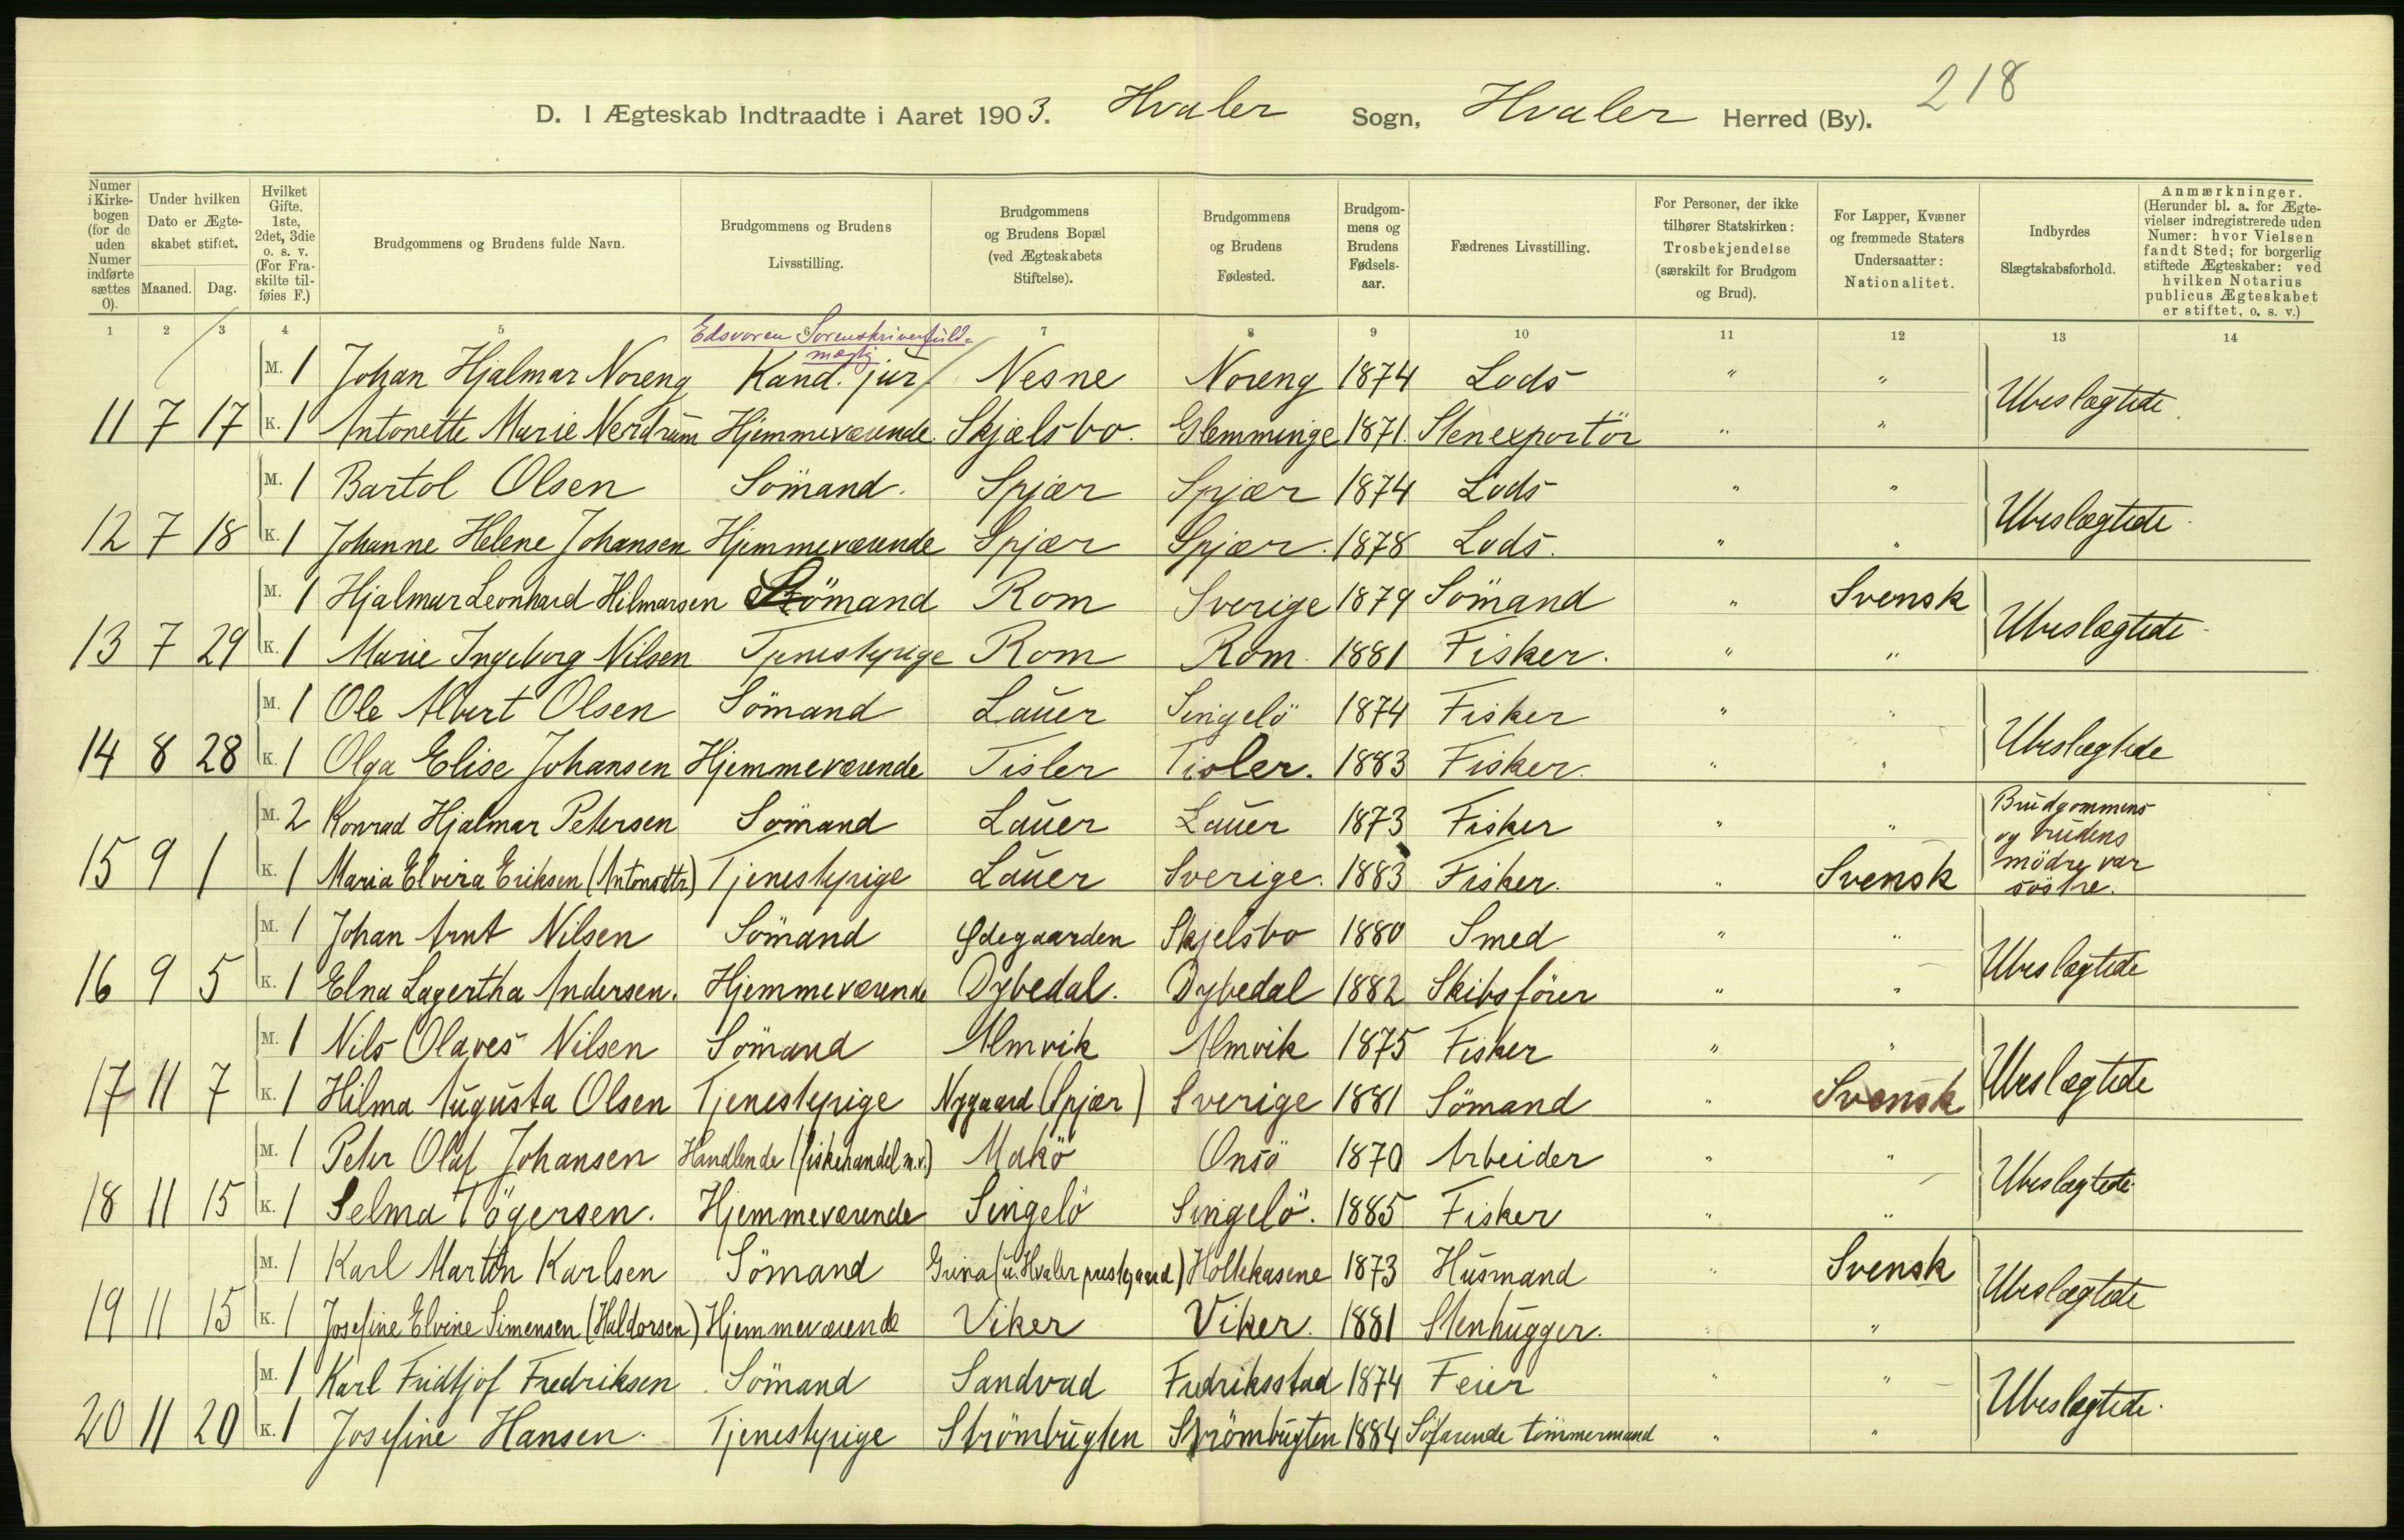 218
D. I Ægteskab Indtraadte i Aaret 1903. Hvaler Sogn, Hvaler Herred (By).
Numer i Kirkebogen (for de uden Numer indførte sættes 0). Under hvilken Dato er Ægteskabet stiftet. Maaned. Dag. Hvilket Gifte. 1ste, 2det, 3die o. s. v. (For Fraskilte tilføies F.) Brudgommens og Brudens fulde Navn. Brudgommens og Brudens Livsstilling. Brudgommens og Brudens Bopæl (ved Ægteskabets Stiftelse). Brudgommens og Brudens Fødested. Brudgommens og Brudens Fødselsaar. Fædrenes Livsstilling. For Personer, der ikke tilhører Statskirken: Trosbekjendelse (særskilt for Brudgom og Brud). For Lapper, Kvæner og fremmede Staters Undersaatter: Nationalitet. Indbyrdes Slægtskabsforhold. Anmærkninger. (Herunder bl. a. for Ægtevielser indregistrerede uden Numer: hvor Vielsen fandt Sted; for borgerlig stiftede Ægteskaber: ved hvilken Notarius publicus Ægteskabet er stiftet, o. s. v.)
1 2 3 4 5 6 7 8 9 10 11 12 13 14
Edsvoren Sorenskriverfuld-
mægtig
M. 1 Johan Hjalmar Noreng Kand. jur Nesne Noreng 1874 Lods " "
Ubeslægtede
11 7 17 K. 1 Antonette Marie Nerdrum Hjemmeværende. Skjælsbo. Glemminge 1871. Stenexportör " "
M. 1 Bartol Olsen Sömand. Spjær Spjær 1874 Lods " "
Ubeslægtede
12 7 18 K. 1 Johanne Helene Johansen Hjemmeværende Spjær Spjær. 1878 Lods. " "
M. 1 Hjalmar Leonhard Hilmarsen Sömand Rom Sverige 1879 Sömand " Svensk
Ubeslægtede
13 7 29 K. 1 Marie Ingeborg Nilsen Tjenestepige Rom Rom. 1881 Fisker. " "
M. 1 Ole Albert Olsen Sömand Lauer Singelö 1874 Fisker " "
Ubeslægtede
14 8 28 K. 1 Olga Elise Johansen Hjemmeværende Tisler Tisler. 1883 Fisker. " "
M. 2 Konrad Hjalmar Petersen Sömand Lauer Lauer 1873 Fisker " "
Brudgommens
og brudens
mödre var
söstre.
15 9 1 K. 1 Maria Elvira Eriksen (Antonsdtr) Tjenestepige Lauer Sverige. 1883 Fisker. " Svensk
M. 1 Johan Arnt Nilsen Sömand Ødegaarden Skjelsbo 1880 Smed " "
Ubeslægtede
16 9 5 K. 1 Elna Lagertha Andersen. Hjemmeværende Dybedal. Dybedal 1882 Skibsförer " "
M. 1 Nils Olaves Nilsen Sömand Almvik Almvik 1875 Fisker " "
Ubeslægtede
17 11 7 K. 1 Hilma Augusta Olsen Tjenestepige Nygaard (Spjær) Sverige 1881 Sömand " Svensk
M. 1 Peter Olaf Johansen Handlende (fiskehandel m.v.) Makö Onsö 1870 Arbeider " "
Ubeslægtede
18 11 15 K. 1 Selma Tögersen. Hjemmeværende Singelö Singelö. 1885 Fisker " "
M. 1 Karl Martin Karlsen Sömand Grina (u. Hvaler prestegaard) Holtekasene 1873 Husmand " Svensk
Ubeslægtede
19 11 15 K. 1 Josefine Elvine Simensen (Haldorsen) Hjemmeværende Viker Viker. 1881 Stenhugger. " "
M. 1 Karl Fridtjof Fredriksen Sömand Sandvad Fredriksstad 1874 Feier " "
Ubeslægtede.
20 11 20 K. 1 Josefine Hansen. Tjenestepige Strömbugten Strömbugten 1884 Söfarende tömmermand " "